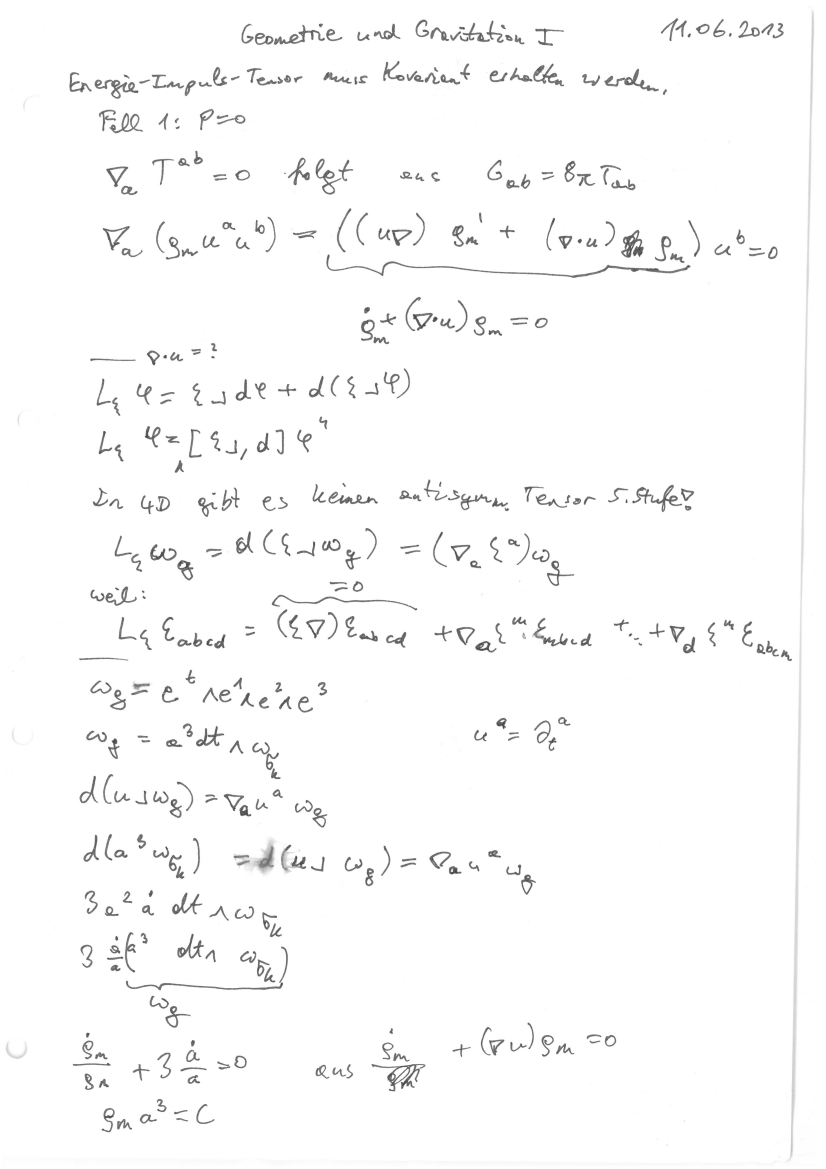 Geometrie und Gravitation I 11.06.2013
Energie-Impuls-Tensor muss Kovariant erhalten werden.
Fall 1: P=0
∇_a T^{ab} = 0 folgt aus G_{ab} = 8π T_{ab}
∇_a (ρ_m u^a u^b) = ((u∇) ρ_m + (∇·u) ρ_m) u^b = 0
ρ̇_m + (∇·u) ρ_m = 0
∇·u = ?
L_ξ φ = ξ⌟dφ + d(ξ⌟φ)
L_ξ φ = [ξ⌟, d] φ
In 4D gibt es keinen antisymm. Tensor 5. Stufe!
L_ξ ω_g = d(ξ⌟ω_g) = (∇_a ξ^a) ω_g
weil: =0
L_ξ ε_{abcd} = (ξ∇) ε_{abcd} + ∇_a ξ^m ε_{mbcd} + ... + ∇_d ξ^m ε_{abcm}
ω_g = e^t ∧ e^1 ∧ e^2 ∧ e^3
ω_g = a^3 dt ∧ ω_{σ_k} u^a = ∂_t^a
d(u⌟ω_g) = ∇_a u^a ω_g
d(a^3 ω_{σ_k}) = d(u⌟ω_g) = ∇_a u^a ω_g
3 a^2 ȧ dt ∧ ω_{σ_k}
3 ȧ/a (a^3 dt ∧ ω_{σ_k})
ω_g
ρ̇_m/ρ_m + 3 ȧ/a = 0 aus ρ̇_m + (∇u) ρ_m = 0
ρ_m a^3 = C